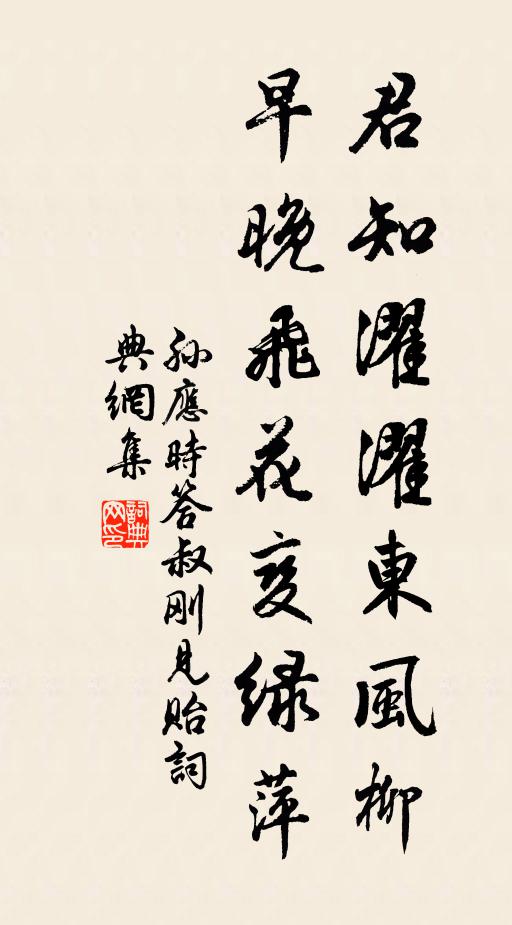 君知濯濯東風柳
早晚飛花变绿萍
孙應時答叔刚見贻詞
典網集
詞典网印